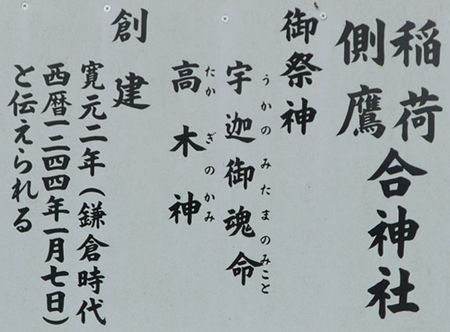 稲荷
側鷹
合神社
御祭神
宇迦御魂命
うかのみたまのみこと
高木神
たかぎのかみ
創建
寛元二年(鎌倉時代
西暦一二四四年一月七日)
と伝えられる